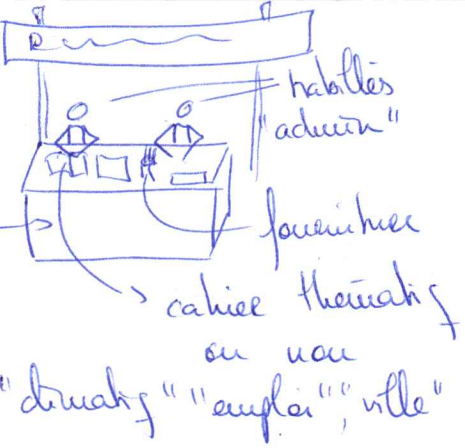 habillés
"admin"
fourniture
cahier thématiq
ou non
"climatiq" "emploi" "ville"